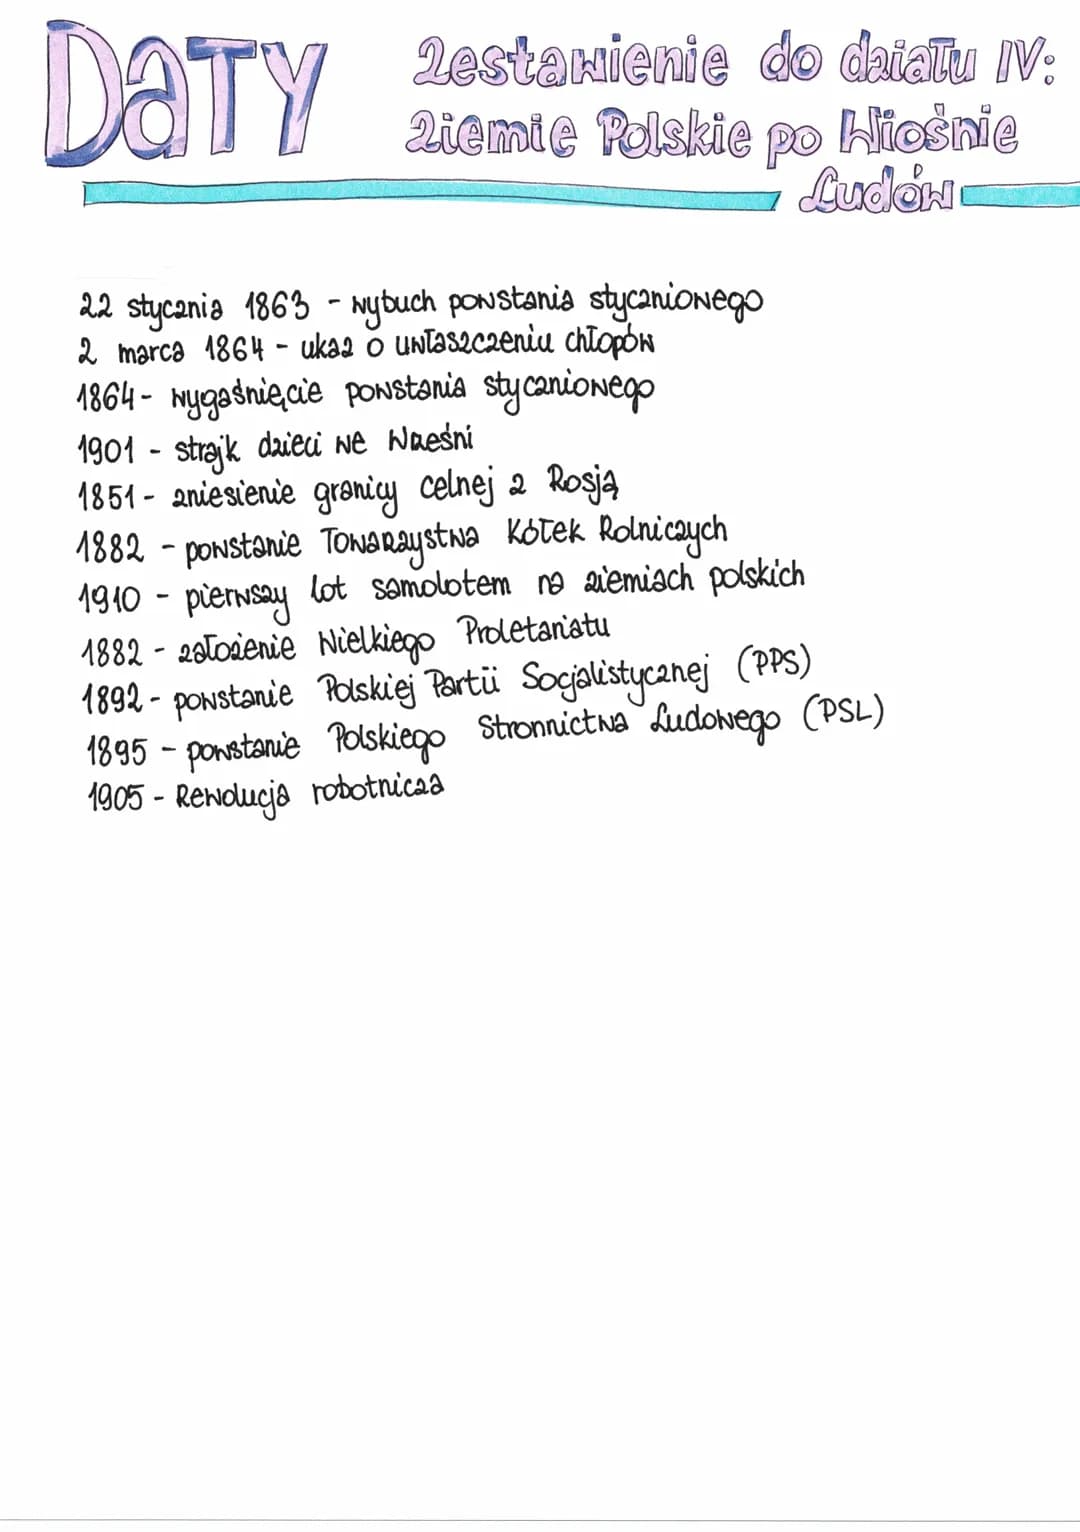 DaTY
Zestawienie do działu IV:
Ziemie Polskie po Wiośnie
Ludów
22 stycznia 1863 - wybuch powstania styczniowego
2 marca 1864 - ukaz o uwłaszczeniu chłopów
1864 - wygaśnięcie powstania styczniowego
1901 - strajk dzieci we Wrześni
1851 - zniesienie granicy celnej z Rosją
1882 - powstanie Towarzystwa Kółek Rolniczych
1910 - pierwszy lot samolotem na ziemiach polskich
1882 - założenie Wielkiego Proletariatu
1892 - powstanie Polskiej Partii Socjalistycznej (PPS)
1895 - powstanie Polskiego Stronnictwa Ludowego (PSL)
1905 - Rewolucja robotnicza